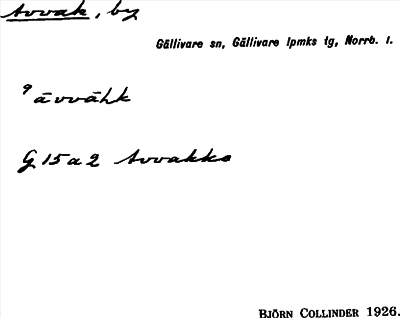 Avvak, by
Gällivare sn, Gällivare lpmks tg, Norrb. l.
? āvvāhk
G 15 a 2 Avvakko
BJÖRN COLLINDER 1926.